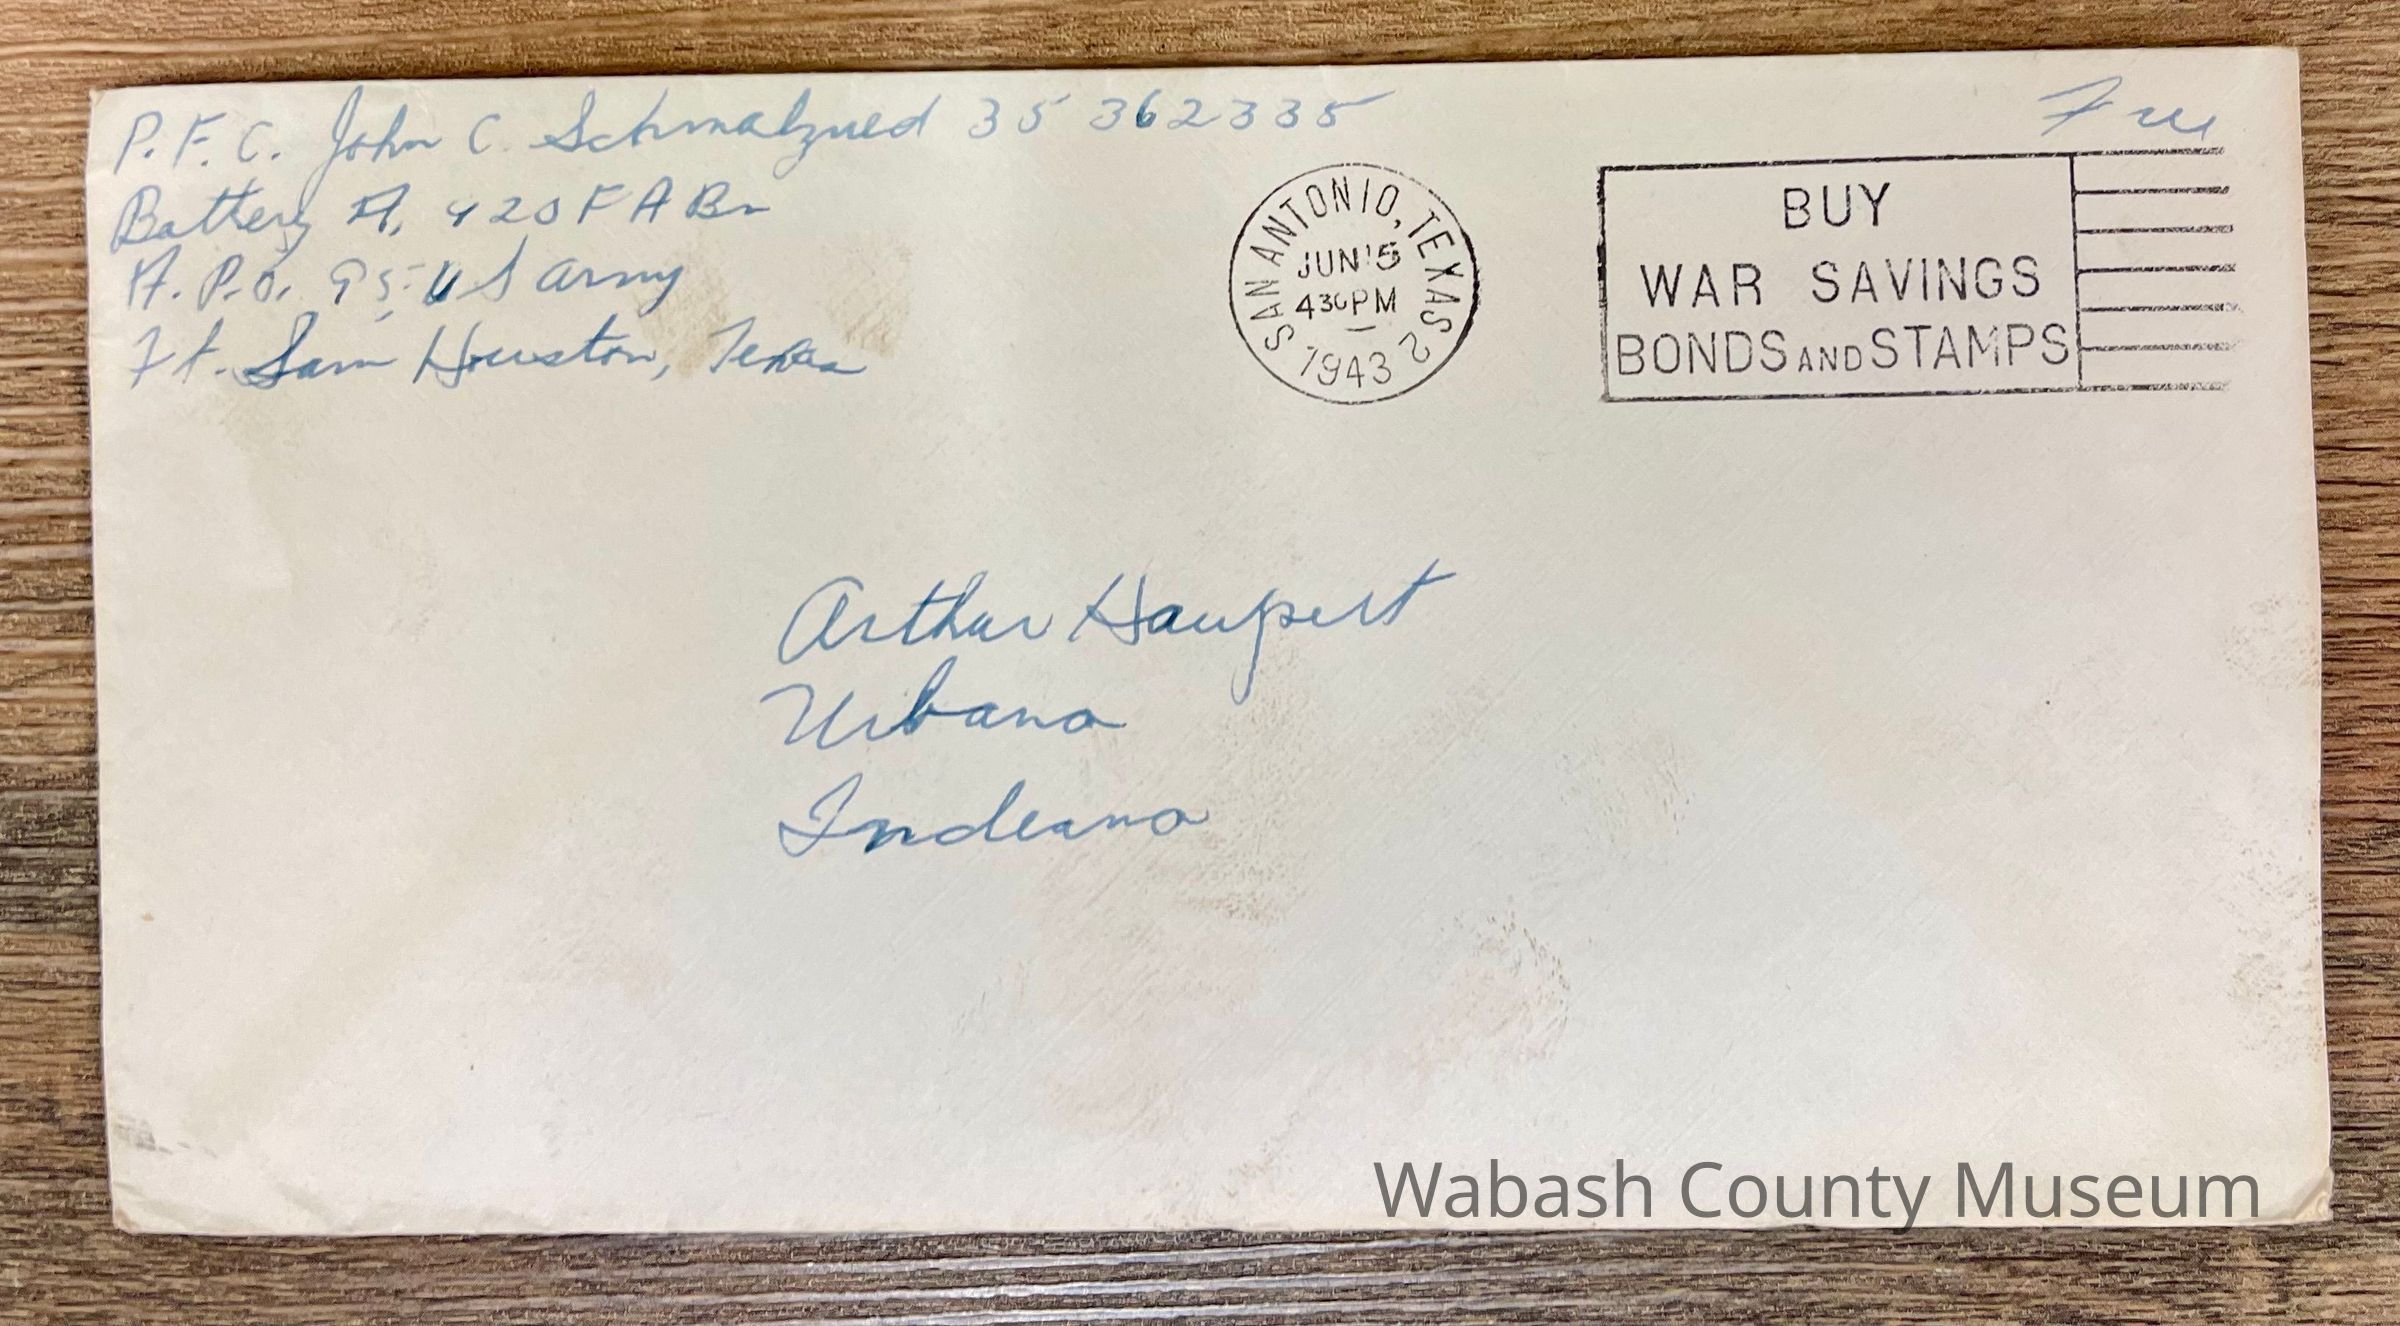 P.F.C. John C. Schmalzried 35 362335
Battery A, 420 F A Bn
A.P.O. 95, U S Army
Ft. Sam Houston, Texas
Free
SAN ANTONIO, TEXAS 2
JUN 15
430 PM
1943
BUY
WAR SAVINGS
BONDS AND STAMPS
Arthur Haupert
Urbana
Indiana
Wabash County Museum